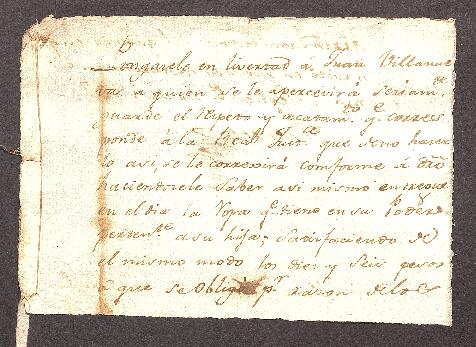 Pongasele en livertad a Juan Villanue
va a quien se le apercevirá seriam.te
guarde el respeto y acatam.to q.e corres
ponde á la Real Just.a que de no hacer
lo asi, se le correxirá comforme á dro
haciendosele saber asi mismo entregue
en el dia la Ropa q.e tiene en su Poder
perten.te a su hija; satisfaciendo de
el mismo modo los diez y seis pesos
a que se obligó p.r razon de los